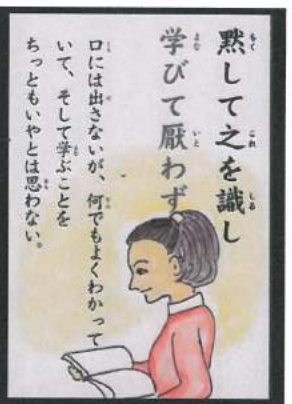 黙して之を識し
学びて厭わず
口には出さないが、何でもよくわかって
いて、そして学ぶことを
ちっともいやとは思わない。